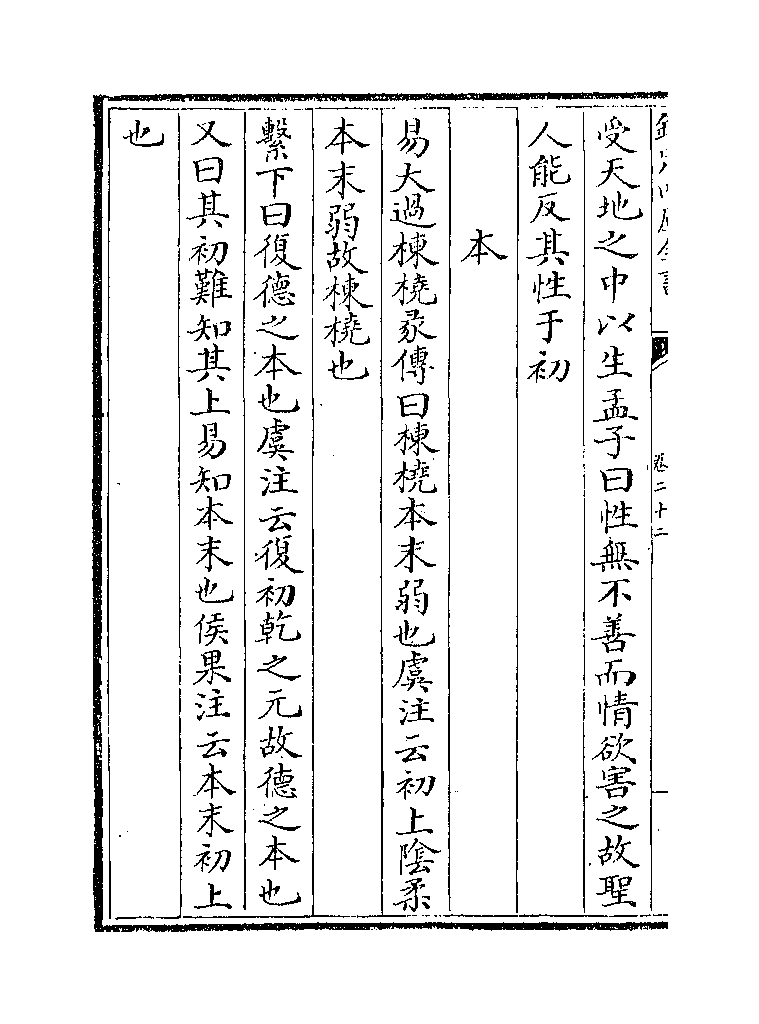 受天地之中以生孟子曰性無不善而情欲害之故聖
人能反其性于初
本
易大過棟橈彖傳曰棟橈本末弱也虞注云初上陰柔
本末弱故棟橈也
繫下曰復德之本也虞注云復初乾之元故德之本也
又曰其初難知其上易知本末也侯果注云本末初上
也
卷二十二